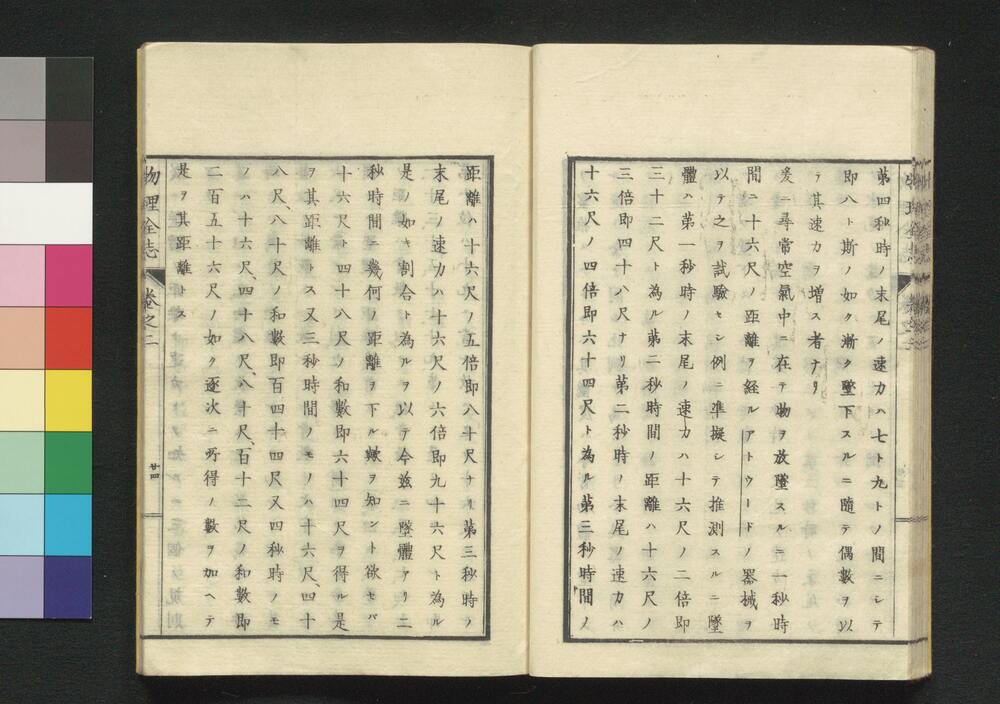 第四秒時ノ末尾ノ速力ハ七ト九トノ間ニシテ
即八ト斯ノ如ク漸ク墜下スルニ隨テ偶數ヲ以
テ其速力ヲ増ス者ナリ
爰ニ尋常空氣中ニ在テ物ヲ放墜スルニ一秒時
間ニ十六尺ノ距離ヲ経ルアトウードノ器械ヲ
以テ之ヲ試驗セシ例ニ準擬シテ推測スルニ墜
體ハ第一秒時ノ末尾ノ速力ハ十六尺ノ二倍即
三十二尺ト為ル第二秒時間ノ距離ハ十六尺ノ
三倍即四十八尺ナリ第二秒時ノ末尾ノ速力ハ
十六尺ノ四倍即六十四尺ト為ル第三秒時間ノ
距離ハ十六尺ノ五倍即八十尺ナリ第三秒時ノ
末尾ノ速力ハ十六尺ノ六倍即九十六尺ト為ル
是ノ如キ割合ト為ルヲ以テ今玆ニ墜體アリ二
秒時間ニ幾何ノ距離ヲ下ル歟ヲ知ント欲セバ
十六尺ト四十八尺ノ和數即六十四尺ヲ得ル是
ヲ其距離トス又三秒時間ノモノハ十六尺、四十
八尺、八十尺ノ和數即百四十四尺又四秒時ノモ
ノハ十六尺、四十八尺、八十尺、百十二尺ノ和數即
二百五十六尺ノ如ク逐次ニ所得ノ數ヲ加ヘテ
是ヲ其距離トス
物理全志 卷之二 廿四